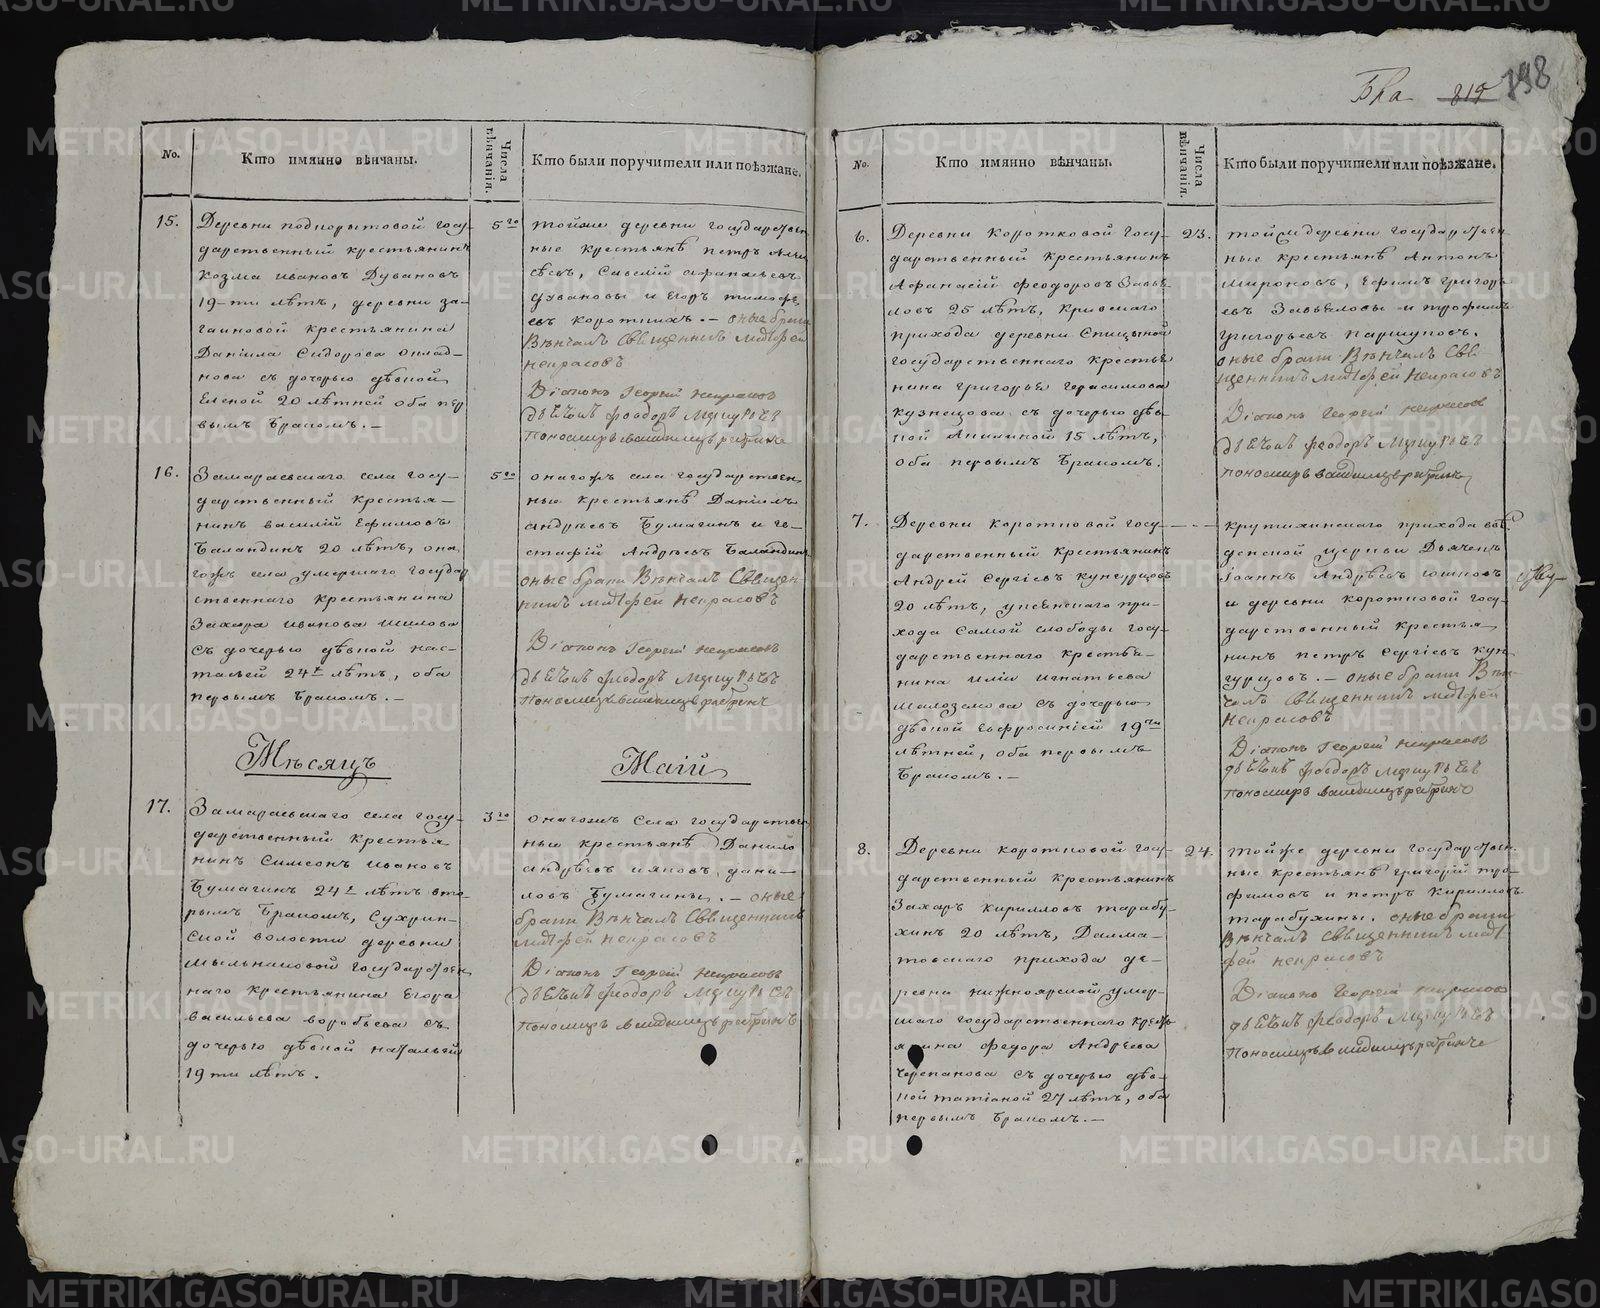 798
No.
Кто имянно вѣнчаны.
Числа вѣнчанія.
Кто были поручители или поѣзжане.
15.
Деревни подкорытовой госу-
дарственный крестьянинъ
Козма Ивановъ Дувановъ
19-ти лѣтъ, деревни за-
гаиновой крестьянина
Даніила Сидорова
нова съ дочерью дѣвкой
Еленой 20 лѣтней оба пер
вымъ бракомъ. —
5го
тойже деревни государствен
ные крестьяне Петръ
Савелій Афанасьевъ
Дувановы и Егоръ Тимофе
евъ Короткихъ. — оные браки
Вѣнчалъ Священникъ Матфей
Некрасовъ
Діаконъ Георгій Некрасовъ
дьячекъ Феодоръ
Пономарь
16.
Замараевскаго села госу-
дарственный крестья-
нинъ Василій Ефимовъ
Баландинъ 20 лѣтъ, она
гожъ села умершаго государ
ственнаго крестьянина
Захара Иванова Шилова
съ дочерью дѣвкой нас-
тасьей 24х лѣтъ, оба
первымъ бракомъ. —
5го
онагожъ села государствен
ные крестьяне Даніилъ
Андреевъ Бумагинъ и Ге-
стафій Андреевъ Баландинъ
оные браки Вѣнчалъ Священ
никъ Матфей Некрасовъ
Діаконъ Георгій Некрасовъ
дьячекъ Феодоръ
Пономарь
Мѣсяцъ Маій
17.
Замараевскаго села госу-
дарственный крестья
нинъ Симеонъ Ивановъ
Бумагинъ 24х лѣтъ вто-
рымъ бракомъ, Сухрин-
ской волости деревни
Мыльниковой государствен
наго крестьянина Егора
Васильева Воробьева съ
дочерью дѣвкой Натальей
19ти лѣтъ.
3го
онагожъ села государствен
ные крестьяне Данило
Андреевъ Иаковъ Дани-
ловъ Бумагины. — оные
браки Вѣнчалъ Священникъ
Матфей Некрасовъ
Діаконъ Георгій Некрасовъ
дьячекъ Феодоръ
Пономарь
No.
Кто имянно вѣнчаны.
Числа вѣнчанія.
Кто были поручители или поѣзжане.
6.
Деревни Коротковой госу-
дарственный крестьянинъ
Афанасій Феодоровъ Завья
ловъ 25 лѣтъ, Кривскаго
прихода деревни Спицыной
государственнаго крестья
нина Григорья Герасимова
Кузнецова съ дочерью дѣв-
кой Акилиной 15 лѣтъ,
оба первымъ бракомъ.
23.
тойже деревни государствен
ные крестьяне Антонъ
Мироновъ, Ефимъ Григорь
евъ Завьяловы и Трофимъ
Григорьевъ Паршуковъ.
оные браки Вѣнчалъ Свя-
щенникъ Матфей Некрасовъ
Діаконъ Георгій Некрасовъ
дьячекъ Феодоръ
пономарь
7.
Деревни Коротковой госу-
дарственный крестьянинъ
Андрей Сергіевъ Кунгурцовъ
20 лѣтъ, Успенскаго при-
хода самой слободы госу-
дарственнаго крестья-
нина Иліи Игнатьева
Шалоземова съ дочерью
дѣвкой Евфросиніей 19ти
лѣтней, оба первымъ
бракомъ. —
Крутихинскаго прихода вве
денской церкви Дьячекъ
Іоаннъ Андреевъ Юшковъ
и деревни Коротковой госу-
дарственный крестья
нинъ Петръ Сергіевъ Кун
гурцовъ. — оные браки Вѣн
чалъ Священникъ Матфей
Некрасовъ
Діаконъ Георгій Некрасовъ
дьячекъ Феодоръ
пономарь
8.
Деревни Коротковой госу-
дарственный крестьянинъ
Захаръ Кирилловъ Тарабу-
хинъ 20 лѣтъ, Далма-
товскаго прихода де-
ревни Нижноярской умер-
шаго государственнаго кресть
янина Федора Андреева
Черепанова съ дочерью дѣв-
кой Татіаной 27 лѣтъ, оба
первымъ бракомъ. —
24.
тойже деревни государствен
ные крестьяне Григорій Тро-
фимовъ и Петръ Кирилловъ
Тарабухины. оные браки
Вѣнчалъ Священникъ Мат
фей Некрасовъ
Діаконъ Георгій Некрасовъ
дьячекъ Феодоръ
Пономарь
METRIKI.GASO-URAL.RU